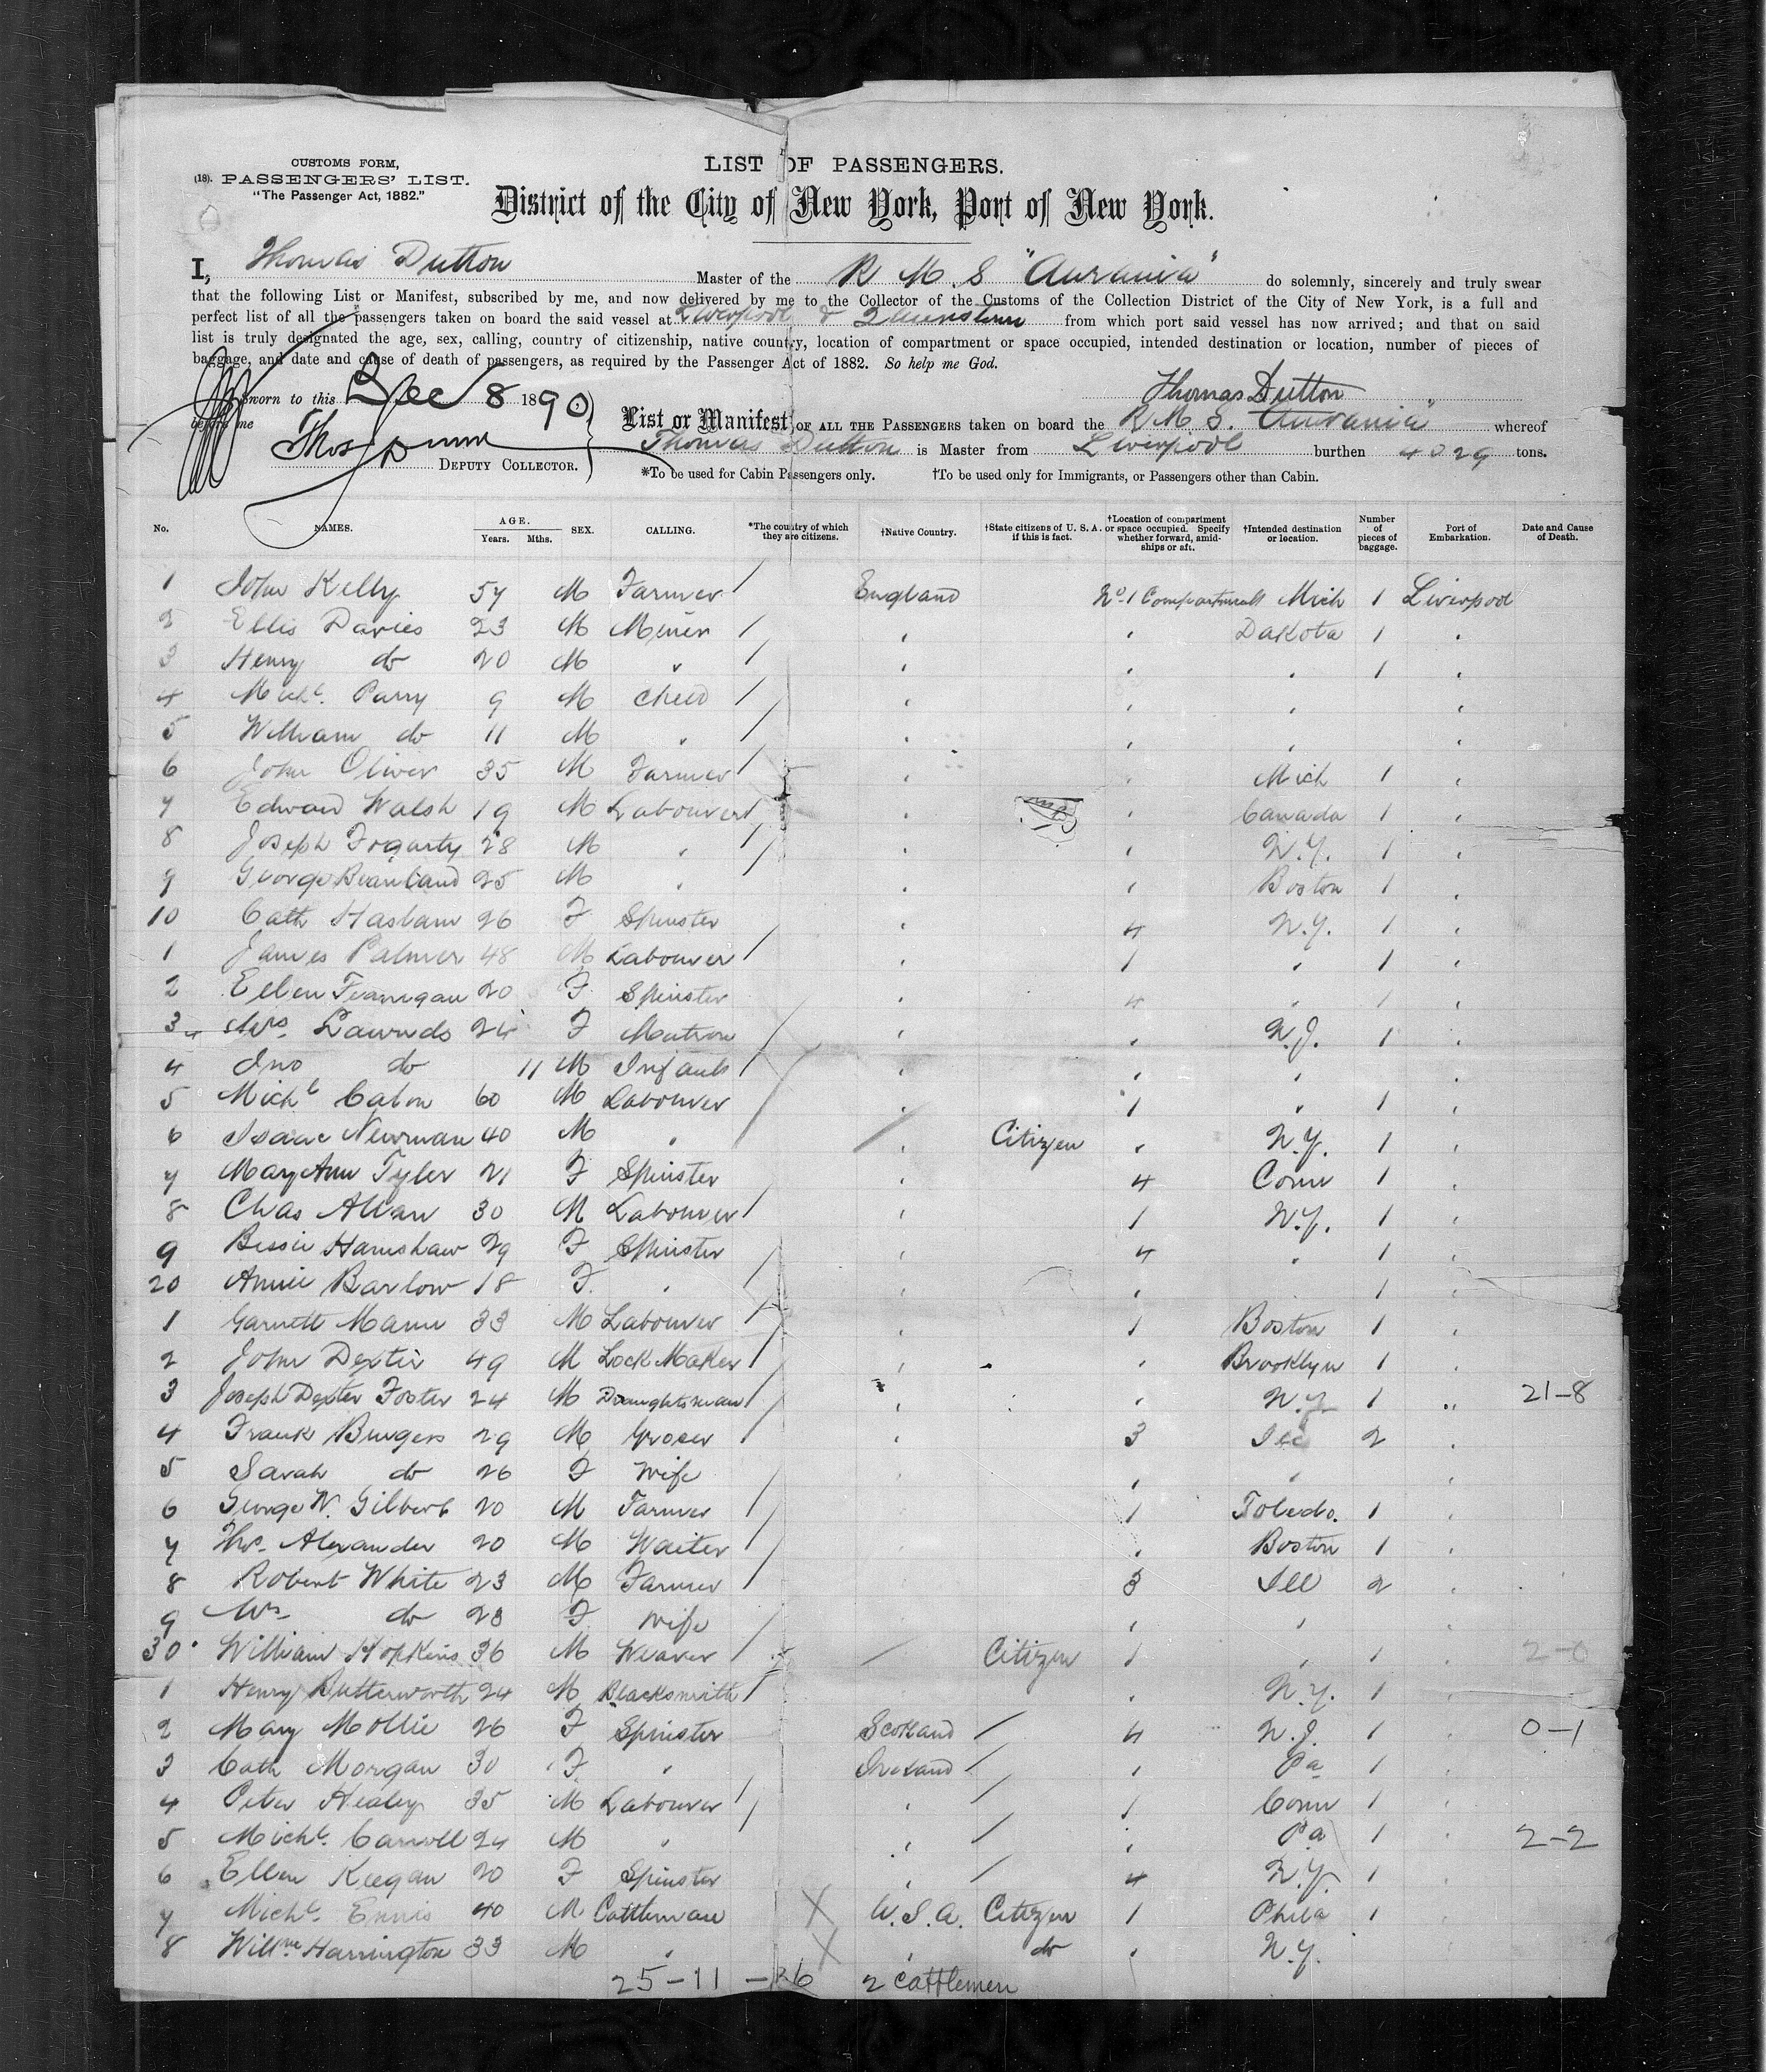 CUSTOMS FORM,
(18). PASSENGERS' LIST.
"The Passenger Act, 1882."
LIST OF PASSENGERS.
District of the City of New York, Port of New York.
I, Thomas Dutton Master of the R M. S "Aurania" do solemnly, sincerely and truly swear
that the following List or Manifest, subscribed by me, and now delivered by me to the Collector of the Customs of the Collection District of the City of New York, is a full and
perfect list of all the passengers taken on board the said vessel at Liverpool & Queenstown from which port said vessel has now arrived; and that on said
list is truly designated the age, sex, calling, country of citizenship, native country, location of compartment or space occupied, intended destination or location, number of pieces of
baggage, and date and cause of death of passengers, as required by the Passenger Act of 1882. So help me God.
Thomas Dutton
Sworn to this Dec 8 1890
before me
Thos Dunn
DEPUTY COLLECTOR.
List or Manifest OF ALL THE PASSENGERS taken on board the R M S. "Aurania" whereof
Thomas Dutton is Master from Liverpool burthen 4029 tons.
*To be used for Cabin Passengers only. †To be used only for Immigrants, or Passengers other than Cabin.
No. NAMES. AGE. Years. Mths. SEX. CALLING. *The country of which they are citizens. †Native Country. †State citizens of U. S. A. if this is fact. †Location of compartment or space occupied. Specify whether forward, amidships or aft. †Intended destination or location. Number of pieces of baggage. Port of Embarkation. Date and Cause of Death.
1 John Kelly 57 M Farmer England No. 1 Compartment Mich 1 Liverpool
2 Ellis Davies 23 M Miner " " Dakota 1 "
3 Henry do 20 M " " " " 1 "
4 Michl. Parry 9 M Child " " " "
5 William do 11 M " " " " "
6 John Oliver 35 M Farmer " " Mich 1 "
7 Edward Walsh 19 M Labourer " " Canada 1 "
8 Joseph Fogarty 28 M " " " N.Y. 1 "
9 George 25 M " " " Boston 1 "
10 Cath Haslam 26 F Spinster " 4 N.Y. 1 "
1 James Palmer 48 M Labourer " 1 " 1 "
2 Ellen Flanigan 20 F Spinster " 4 " 1 "
3 Mrs. Lawnds 24 F Matron " " N.J. 1 "
4 Jno do 11 M Infant " " " "
5 Michl Caton 60 M Labourer " 1 " 1 "
6 Isaac Newman 40 M " " Citizen " N.Y. 1 "
7 Mary Ann Tyler 21 F Spinster " 4 Conn 1 "
8 Chas Allan 30 M Labourer " 1 N.Y. 1 "
9 Bessie Hamshaw 29 F Spinster " 4 " 1 "
20 Annie Barlow 18 F. " " " " 1 "
1 Garnett Mann 33 M Labourer " 1 Boston 1 "
2 John Dexter 49 M Lock Maker " " Brooklyn 1 "
3 Joseph Dexter Foster 24 M Draughtsman " " N.Y 1 " 21-8
4 Frank Burgess 29 M Grocer " 3 Ill 2 "
5 Sarah do 26 F Wife " " " "
6 George W. Gilbert 20 M Farmer 1 Toledo. 1 "
7 Thos. Alexander 20 M Waiter " Boston 1 "
8 Robert White 23 M Farmer 3 Ill 2 "
9 Mrs do 23 F Wife " " "
30 William Hopkins 36 M Weaver Citizen 1 " 1 " 2-0
1 Henry Butterworth 24 M Blacksmith " N.Y. 1 "
2 Mary Mollie 26 F Spinster Scotland 4 N.J. 1 " 0-1
3 Cath Morgan 30 F " Ireland " Pa 1 "
4 Peter Healey 35 M Labourer " 1 Conn 1 "
5 Michl. Carroll 24 M " " " Pa 1 " 2-2
6 Ellen Keegan 20 F Spinster " 4 N.Y. 1 "
7 Michl. Ennis 40 M Cattleman X U.S.A. Citizen 1 Phila 1 "
8 Willm Harrington 33 M " X " do " N.Y.
25-11-26 2 cattlemen